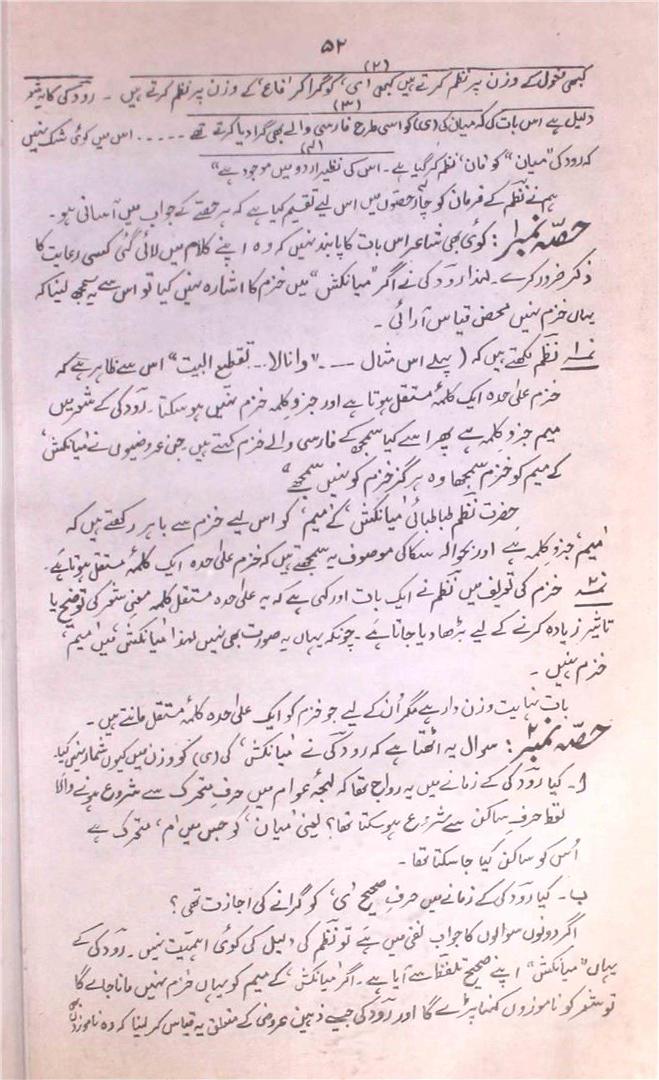 ۵۲
(۲)
کبھی مفعول کے وزن پر نظم کرتے ہیں کبھی 'ی' کو گرا کر 'فاع' کے وزن پر نظم کرتے ہیں ۔ رودکی کا یہ شعر
(۳)
دلیل ہے اس بات کی کہ میان کی (ی) کو اسی طرح فارسی والے بھی گرا دیا کرتے تھے ۔۔۔۔۔ اس میں کوئی شک نہیں
(۴)
کہ رودکی "میان" کو 'مان' نظم کر گیا ہے ۔ اس کی نظیر اردو میں موجود ہے"
ہم نے نظم کے فرمان کو چار حصّوں میں اس لیے تقسیم کیا ہے کہ ہر حصّے کے جواب میں آسانی ہو ۔
حصّہ نمبر ۱: کوئی بھی شاعر اس بات کا پابند نہیں کہ وہ اپنے کلام میں لائی گئی کسی رعایت کا
ذکر ضرور کرے ۔ لہٰذا رودکی نے اگر "میانکش" میں خزم کا اشارہ نہیں کیا تو اس سے یہ سمجھ لینا کہ
یہاں خزم نہیں محض قیاس آرائی ۔
نمبر۱ نظم لکھتے ہیں کہ ( پہلے اس مثال ۔۔۔ "وانالا... تقطیع البیت" اس سے ظاہر ہے کہ
خزم علٰی حدہ ایک کلمۂ مستقل ہوتا ہے اور جزوِ کلمہ خزم نہیں ہو سکتا ۔ رودکی کے شعر میں
میم جزوِ کلمہ ہے پھر اسے کیا سمجھ کے فارسی والے خزم کہتے ہیں ۔ جن عروضیوں نے 'میانکش'
کے میم کو خزم سمجھا وہ ہرگز خزم کو نہیں سمجھے"
حضرت نظم طباطبائی 'میانکش' کے 'میم' کو اس لیے خزم سے باہر رکھتے ہیں کہ
'میم' جزوِ کلمہ ہے اور بحوالہ سکاکی موصوف یہ سمجھتے ہیں کہ خزم علٰی حدہ ایک کلمۂ مستقل ہوتا ہے ۔
نمبر۲ خزم کی تعریف میں نظم نے ایک بات اور کہی ہے کہ یہ علٰی حدہ مستقل کلمہ معنیِ شعر کی توضیح یا
تاثیر زیادہ کرنے کے لیے بڑھا دیا جاتا ہے ۔ چونکہ یہاں یہ صورت بھی نہیں لہٰذا 'میانکش' میں 'میم'
خزم نہیں ۔
بات نہایت وزن دار ہے مگر اُن کے لیے جو خزم کو ایک علٰی حدہ کلمۂ مستقل مانتے ہیں ۔
حصّہ نمبر ۲: سوال یہ اٹھتا ہے کہ رودکی نے 'میانکش' کی (ی) کو وزن میں کیوں شمار نہیں کیا۔
ا ۔ کیا رودکی کے زمانے میں یہ رواج تھا کہ لہجۂ عوام میں حرفِ متحرک سے شروع ہونے والا
لفظ حرفِ ساکن سے شروع ہو سکتا تھا؟ یعنی 'میان' کو جس میں 'م' متحرک ہے
اُس کو ساکن کیا جا سکتا تھا ۔
ب ۔ کیا رودکی کے زمانے میں حرفِ صحیح 'ی' کو گرانے کی اجازت تھی ؟
اگر دونوں سوالوں کا جواب نفی میں ہے تو نظم کی دلیل کی کوئی اہمیّت نہیں ۔ رودکی کے
یہاں "میانکش" اپنے صحیح تلفظ سے آیا ہے ۔ اگر 'میانکش' کے میم کو یہاں خزم نہیں مانا جائے گا
تو شعر کو ناموزوں کہنا پڑے گا اور رودکی جیسے ذہین عروضی کے متعلق یہ قیاس کر لینا کہ وہ ناموزوں